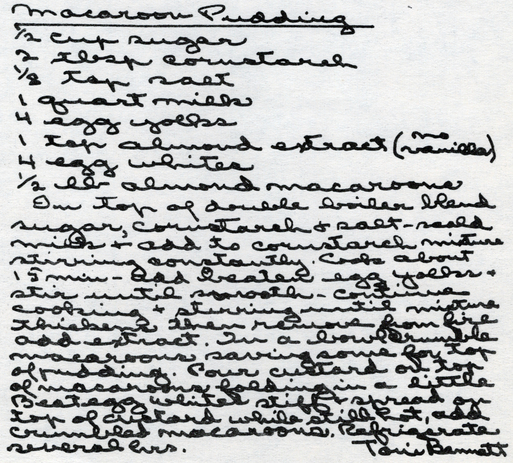 Macaroon Pudding
1/2 cup sugar
2 tbsp cornstarch
1/8 tsp salt
1 quart milk
4 egg yolks
1 tsp almond extract (no vanilla)
4 egg whites
1/2 lb almond macaroons
In top of double boiler blend
sugar, cornstarch & salt - scald
milk + add to cornstarch mixture
stirring constantly. Cook about
15 min - add beaten egg yolks +
stir until smooth - continue
cooking + stirring until mixture
thickens then remove from fire
add extract. In a bowl crumble
macaroons saving some for top
of pudding. Pour custard on top
of macaroons folding in a little
Beat egg whites stiff + spread on
top of custard while still hot, add
crumbled macaroons. Refrigerate
several hrs. Toni Bennett